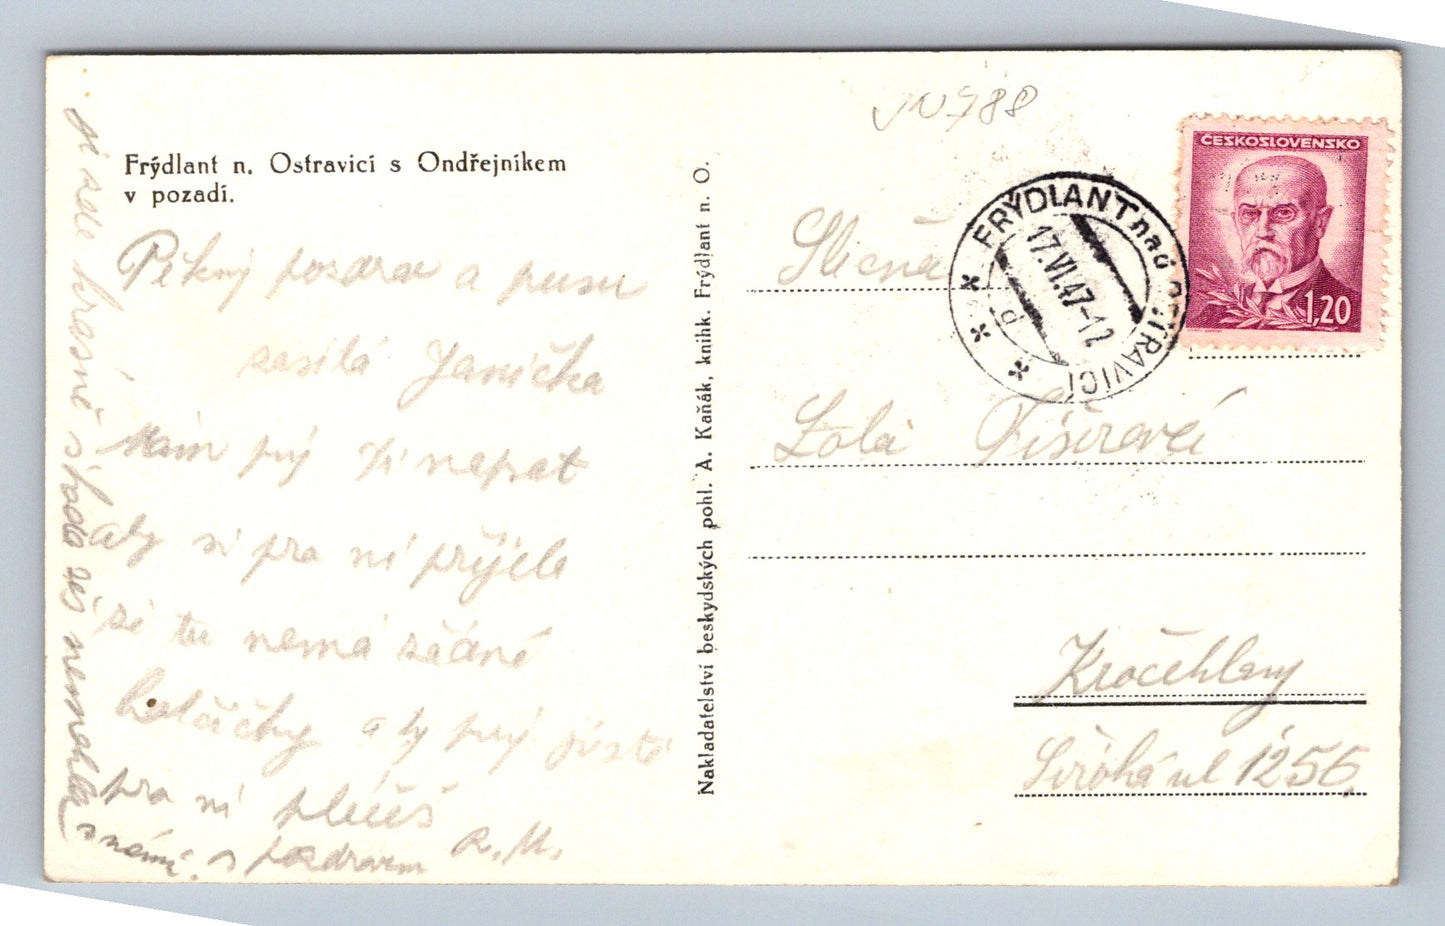 Frýdlant n. Ostravicí s Ondřejníkem
v pozadí.
Pěkný pozdrav a pusu
zasílá Janička
Mám prý ti napsat
aby si pro ní přijela
že tu nemá žádné
holčičky a ty prý jistě
pro ní pláčeš
je zde krásně škoda že's nemohla
s námi. S pozdravem R. M.
Nakladatelství beskydských pohl. A. Kaňák, knihk. Frýdlant n. O.
JN 788
ČESKOSLOVENSKO
1,20
FRÝDLANT nad OSTRAVICÍ
17.VI.47-12
Slečna
Lola Fišerová
Kročehlavy
Široká ul 1256.